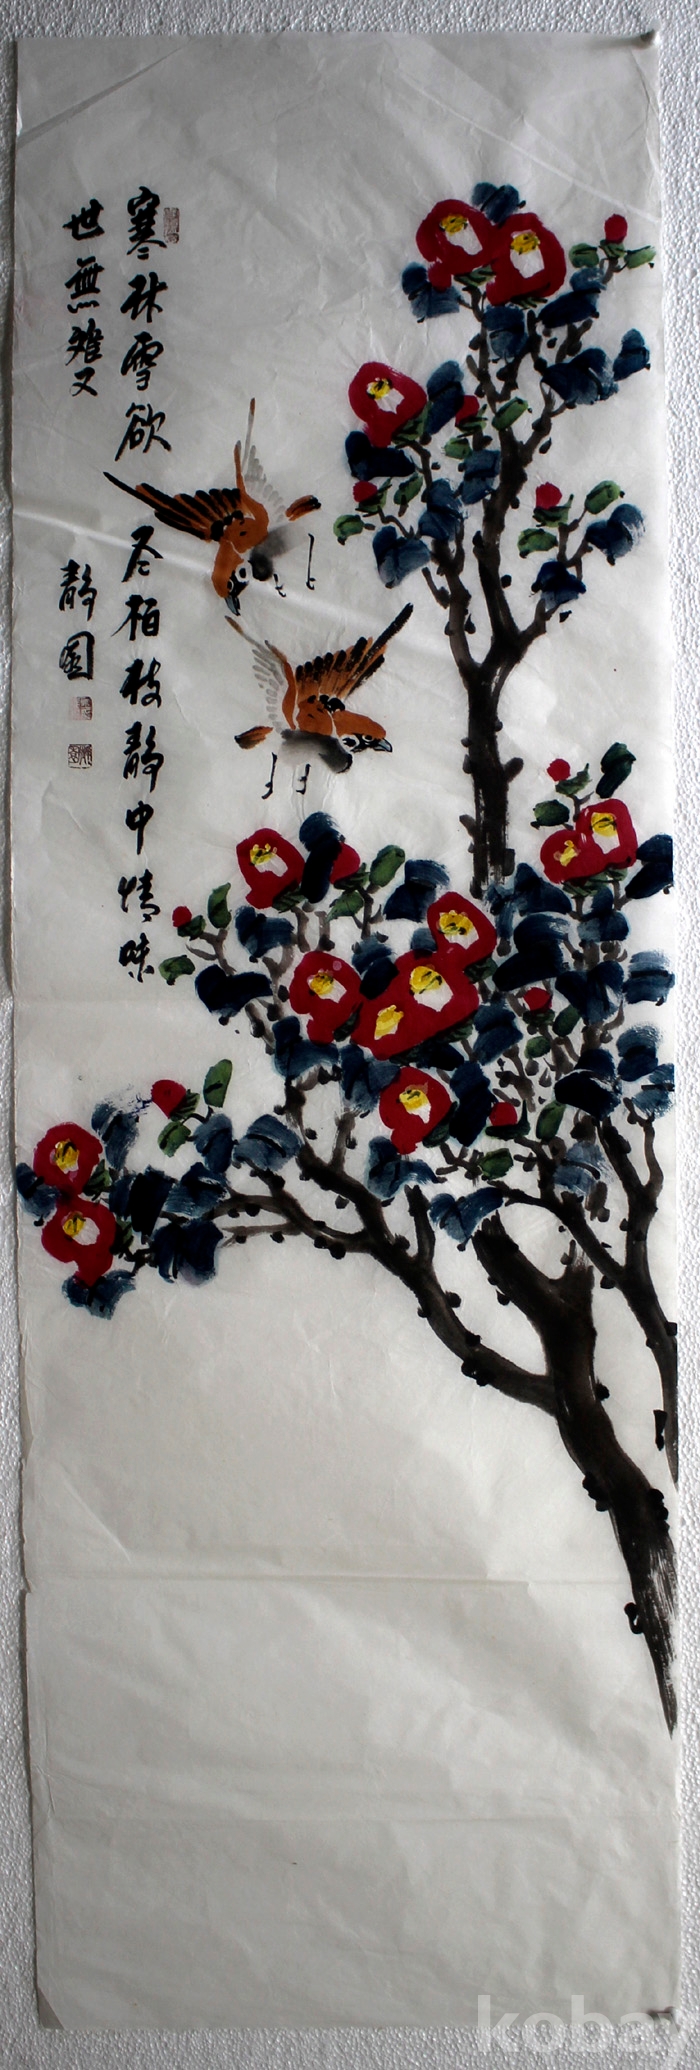 寒林雪欲尽柏枝静中情味
世無雙又
静園
kobay